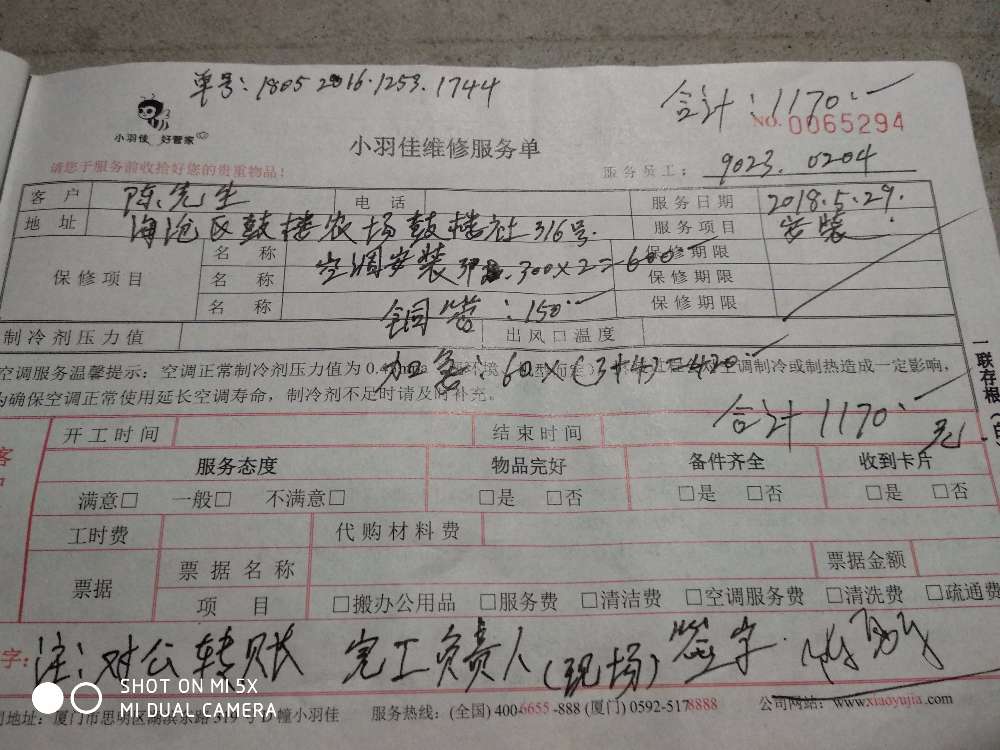 单号：1805 2016.1253.1744
合计：1170.
小羽佳 好管家
小羽佳维修服务单
NO. 0065294
请您于服务前收拾好您的贵重物品！
服务员工： 9023. 0204
客 户 陈先生 电 话 服务日期 2018.5.29.
地 址 海沧区鼓楼农场鼓楼社316号. 服务项目 安装
保修项目
名 称 空调安装 300×2=600 保修期限
名 称 保修期限
名 称 铜管：150 保修期限
制冷剂压力值 出风口温度
加多：60×(3+4)=420
空调服务温馨提示：空调正常制冷剂压力值为 调制冷或制热造成一定影响，
为确保空调正常使用延长空调寿命，制冷剂不足时请及时补充。
一联存根
合计 1170.元
开工时间 结束时间
服务态度 物品完好 备件齐全 收到卡片
满意□ 一般□ 不满意□ □是 □否 □是 □否 □是 □否
工时费 代购材料费
票据 票据名称 票据金额
项 目 □搬办公用品 □服务费 □清洁费 □空调服务费 □清洗费 □疏通费
字：注：对公转账 完工负责人(现场)签字.
SHOT ON MI 5X
MI DUAL CAMERA
地址：厦门市思明区湖滨东路319号D幢小羽佳 服务热线：(全国) 400-6655-888 (厦门) 0592-5178888 公司网站：www.xiaoyujia.com